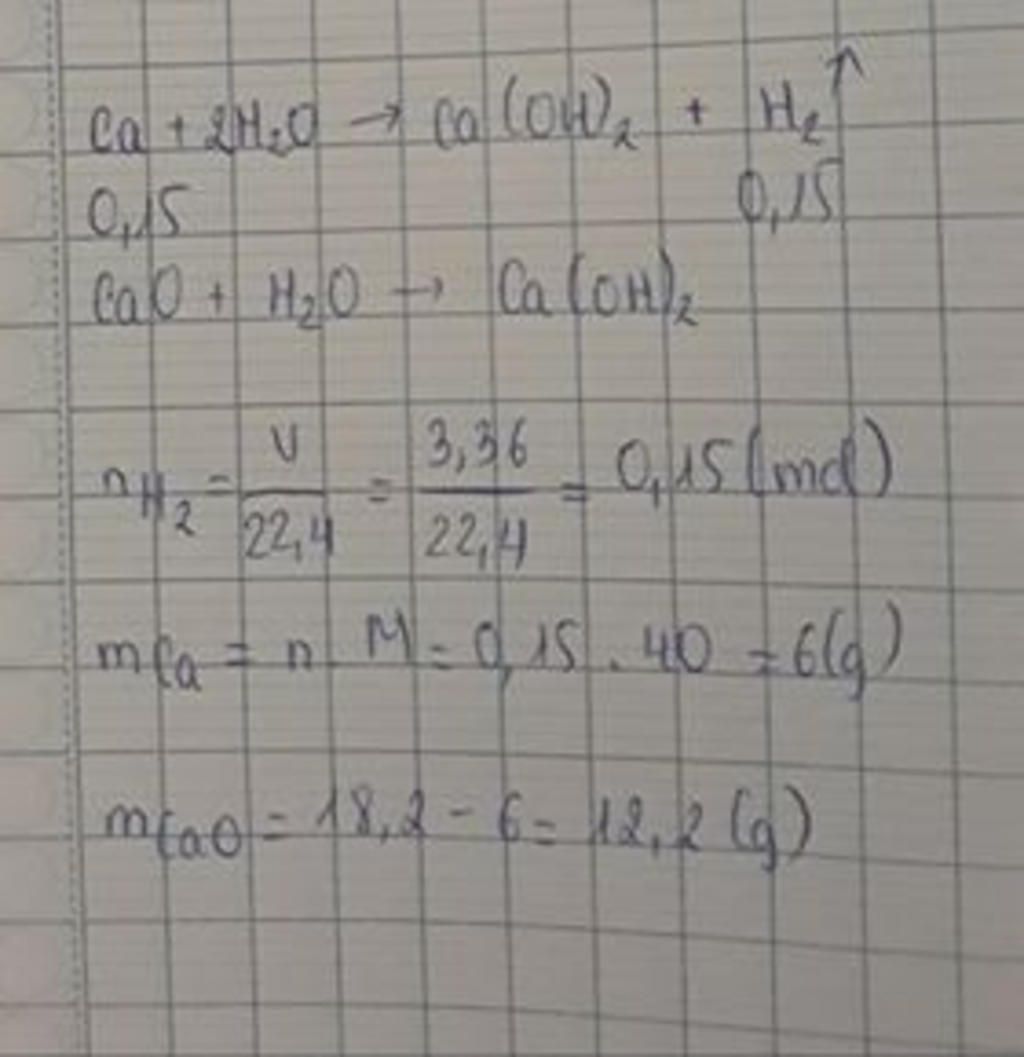 Ca + 2H₂O → Ca(OH)₂ + H₂↑
0,15 0,15
CaO + H₂O → Ca(OH)₂
nH₂ = V/22,4 = 3,36/22,4 = 0,15 (mol)
mCa = n . M = 0,15 . 40 = 6(g)
mCaO = 18,2 - 6 = 12,2 (g)